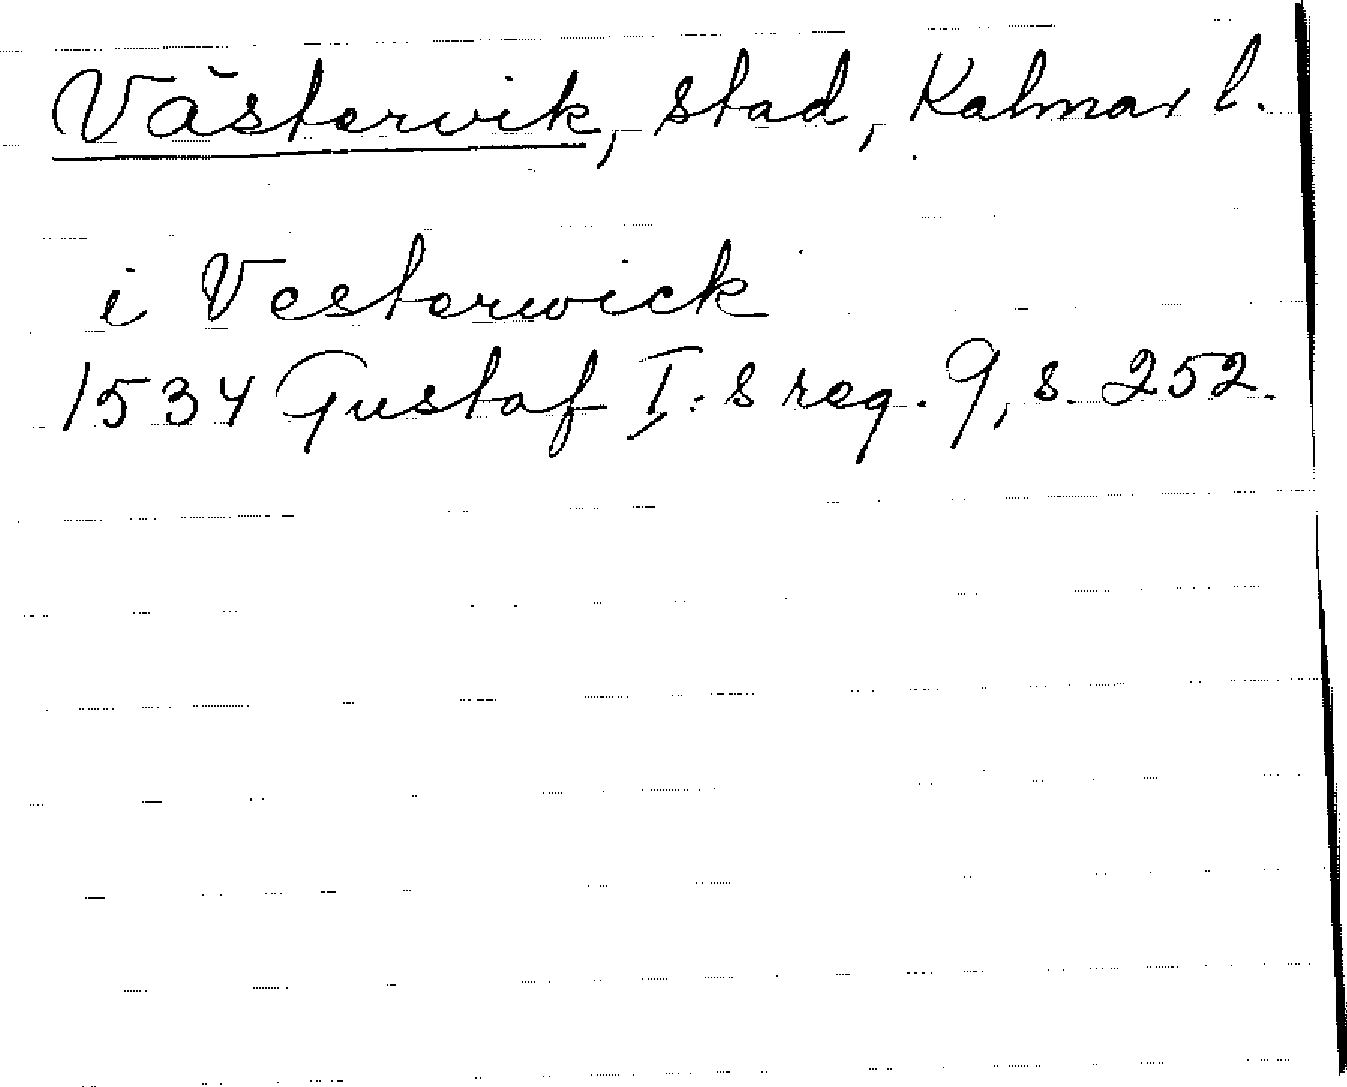 Västervik, stad, Kalmar l.
i Vesterwick
1534 Gustaf I:s reg. 9, s. 252.